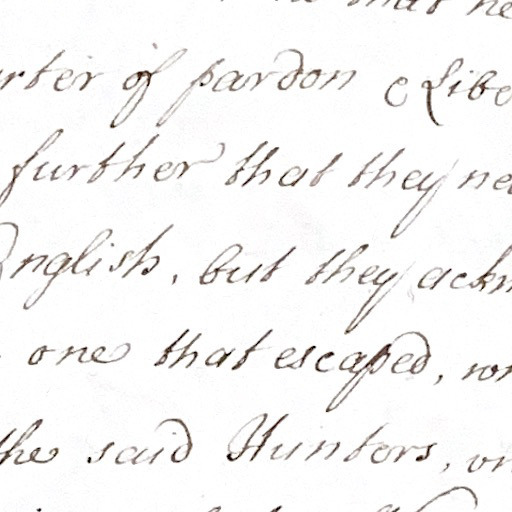 that he
rter of pardon & Libe
further that they ne
English, but they ackn
one that escaped, wh
the said Hunters, wh